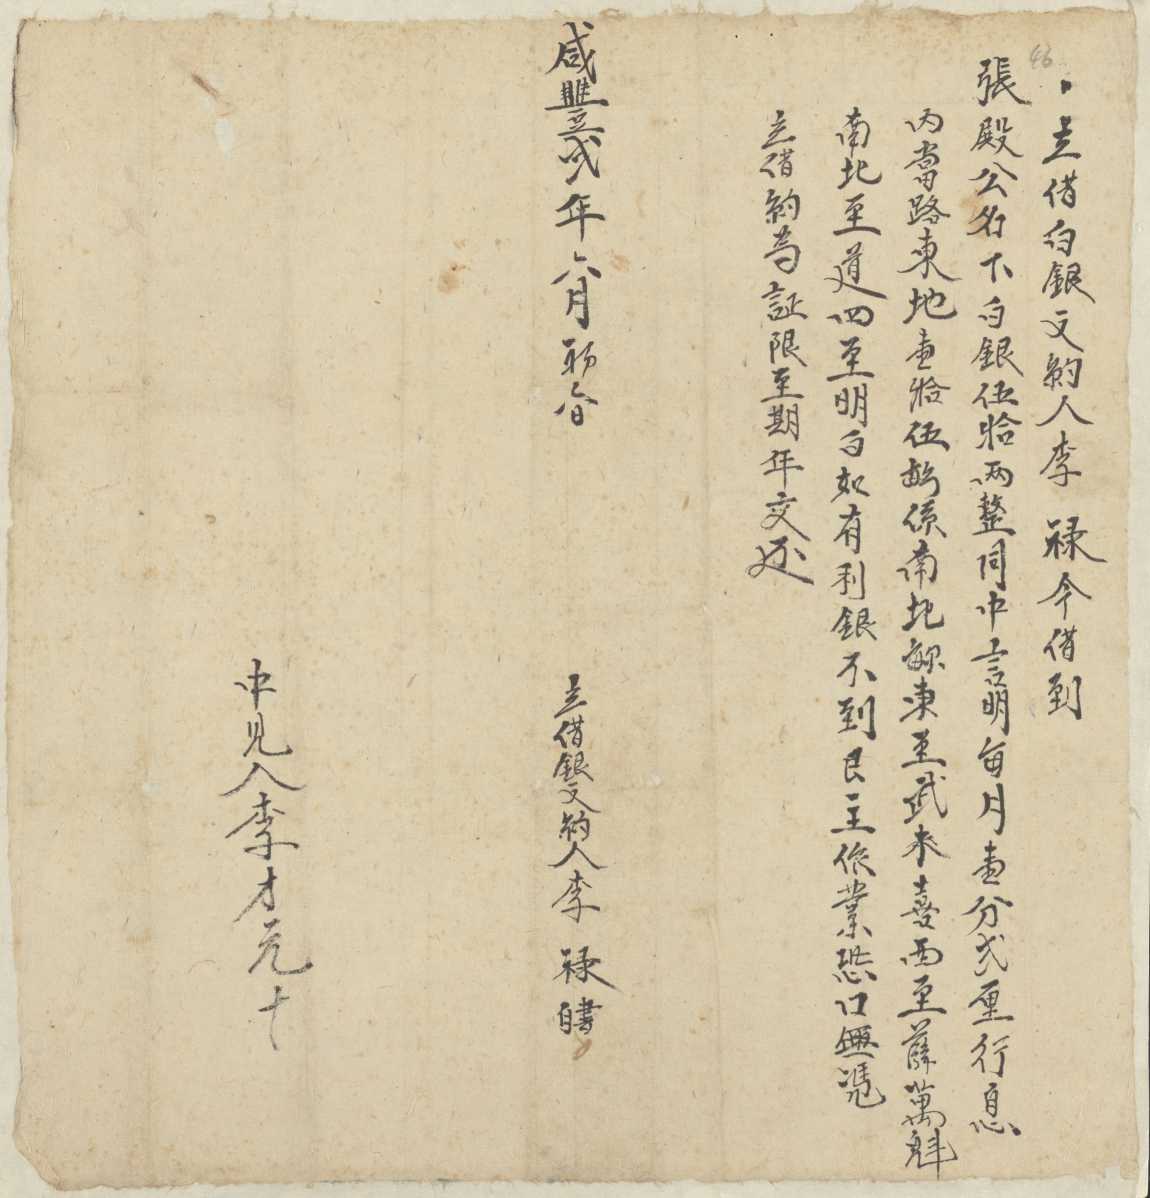 46
立借白銀文約人李 祿今借到
張殿公名下白銀伍拾両整同中言明每月壹分弍厘行息
內當路東地壹拾伍畝係南北畛東至武來喜西至薛萬魁
南北至道四至明白如有利銀不到艮主作業恐口無憑
立借約為証限至期年交还
咸豐弍年六月初六日
立借銀文約人李 祿 自書
中見人李才元十